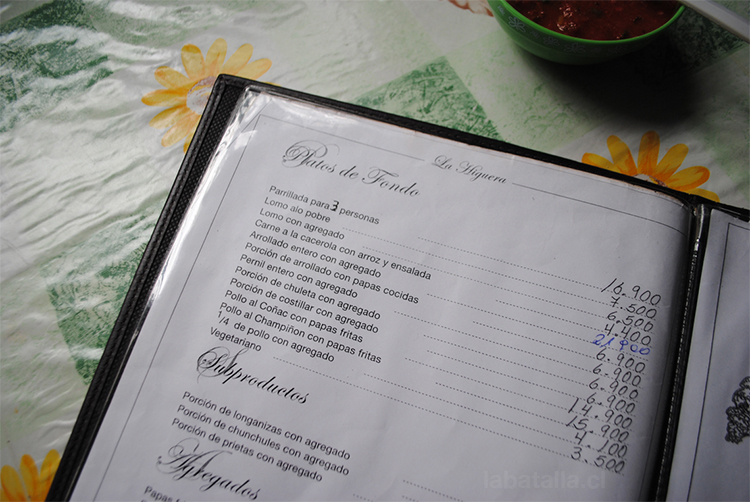 La Higuera
Platos de Fondo
Parrillada para 3 personas
Lomo a lo pobre
Lomo con agregado
Carne a la cacerola con arroz y ensalada
Arrollado entero con agregado
Porción de arrollado con papas cocidas
Pernil entero con agregado
Porción de chuleta con agregado
Porción de costillar con agregado
Pollo al Coñac con papas fritas
Pollo al Champiñon con papas fritas
1/4 de pollo con agregado
Vegetariano
16.900
7.500
6.500
4.400
21.900
6.900
6.900
6.900
6.900
14.900
15.900
4.100
3.500
Subproductos
Porción de longanizas con agregado
Porción de chunchules con agregado
Porción de prietas con agregado
Agregados
Papas
labatalla.cl